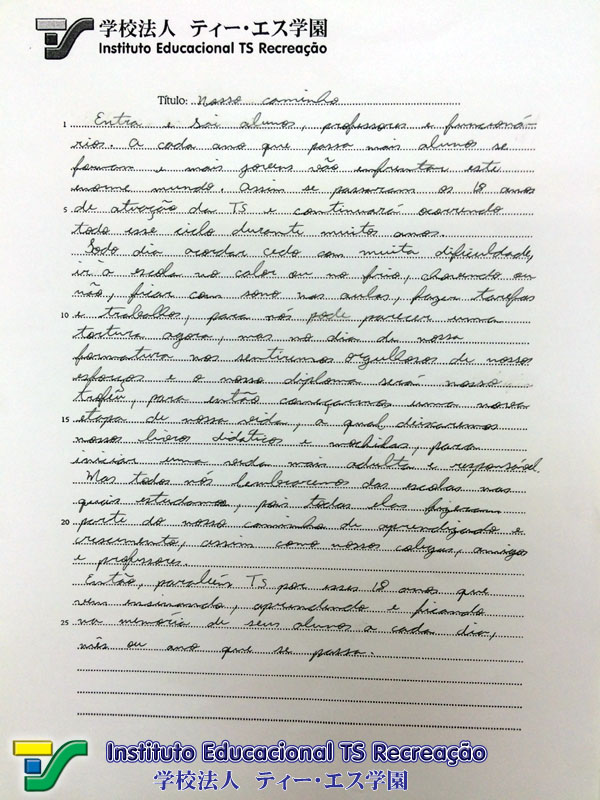 学校法人 ティー・エス学園
Instituto Educacional TS Recreação
Título: Nosso caminho
1 Entra e sai alunos, professores e funcioná-
rios. A cada ano que passa mais alunos se
formam e mais jovens vão enfrentar este
enorme mundo. Assim se passaram os 18 anos
5 de atuação da TS e continuará ocorrendo
todo esse ciclo durante muitos anos.
Todo dia acordar cedo com muita dificuldade,
ir à escola no calor ou no frio, chovendo ou
não, ficar com sono nas aulas, fazer tarefas
10 e trabalhos, para nós pode parecer uma
tortura agora, mas no dia de nossa
formatura nos sentiremos orgulhosos de nossos
esforços e o nosso diploma será nosso
troféu, para então começarmos uma nova
15 etapa de nossa vida, a qual deixaremos
nossos livros didáticos e mochilas, para
iniciar uma vida mais adulta e responsável.
Mas todos nós lembraremos das escolas nas
quais estudamos, pois todas elas fizeram
20 parte do nosso caminho de aprendizado e
crescimento, assim como nossos colegas, amigos
e professores.
Então, parabéns TS por esses 18 anos que
vem ensinando, aprendendo e ficando
25 na memória de seus alunos a cada dia,
mês ou ano que se passa.
Instituto Educacional TS Recreação
学校法人 ティー・エス学園